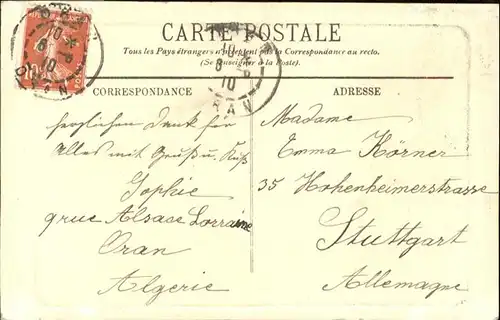 CARTE POSTALE
Tous les Pays étrangers n'acceptent pas la Correspondance au recto.
(Se renseigner à la Poste).
CORRESPONDANCE
herzlichen Dank für
Alles mit Gruß u. Kuß
Sophie
9 rue Alsace Lorraine
Oran
Algerie
ADRESSE
Madame
Emma Körner
35 Hohenheimerstrasse
Stuttgart
Allemagne
ORAN